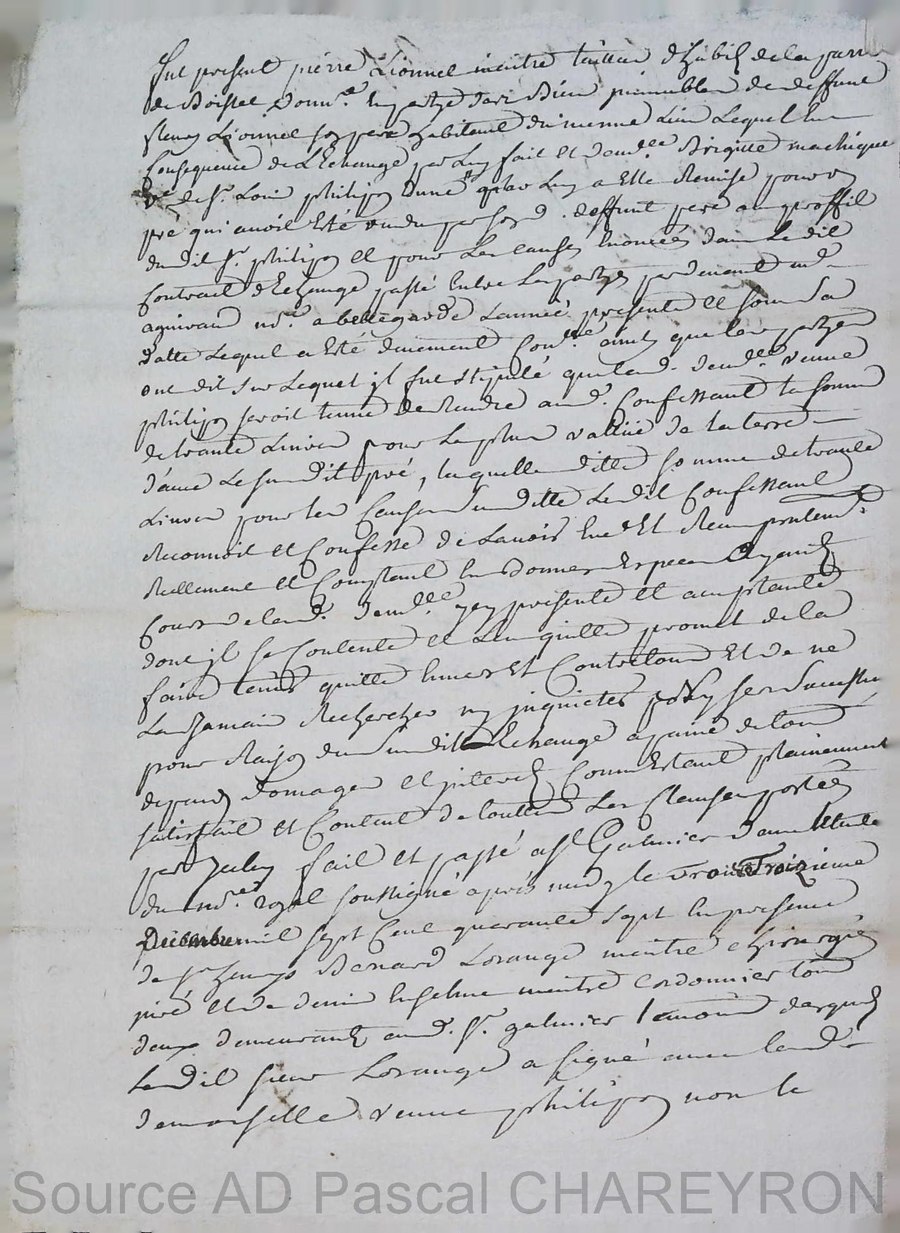 Fut present pierre Lionnel maitre tailleur d'habit de la parr
de Boisset donn.re en partye des Biens immeubles de deffunt
fleury Lionnel son pere habitant du mesme Lieu Lequel en
Consequence de L'Echange par Luy fait et dem.lle Brigitte machique
v.e de S.r Loui philipon dune par Luy a Elle Remise pour un
pré qui avoit Eté vendu par son d. deffunt pere au proffit
dudit S.r philipon et pour Les causes Enoncées dans Le dit
Contract d'Echange passé Entre Les partyes pardevant m.e
nor.e a bellegarde L'année presente et sous sa
datte Lequel a Eté duement Con.lle ainsy que les partyes
ont dit sur Lequel il fut stipulé que lad. dem.lle veuve
philipon seroit tenue de Rendre aud. Confessant la somme
de trante Livres pour La plus vallüe de la terre
d'avec Le susdit pré, laquelle ditte somme de trante
Livres pour les Causes susdittes Ledit Confessant
Reconnoit et Confesse de L'avoir Eue Et Reçue presentem.t
Reellement et Comptant En bonnes Especes Ayant
Cours de lad. dem.lle icy presente et acceptante
dont jl se Contente et L'en quitte promet de la
faire tenir quitte Envers Et Contre tous Et de ne
La Jamais Rechercher ny jnquieter ny ses successeurs
pour Raison du susdit Echange a peine de tous
depens domages et jnterets Comm Estant plainement
satisfait et Content de touttes Les Clauses portées
par Jceluy fait et passé a S.t Galmier dans l'Etude
du no.re royal soussigné après midy le Troizieme
Décembre mil sept Cent quarante sept En presence
de S.r Bernard Lorange maitre chirurgien
juré et de denis Enselme maitre Cordonnier tous
deux demeurants aud. S.t galmier temoins desquels
Ledit sieur Lorange a signé avec lad.
demoiselle veuve philipon non le
Source AD Pascal CHAREYRON